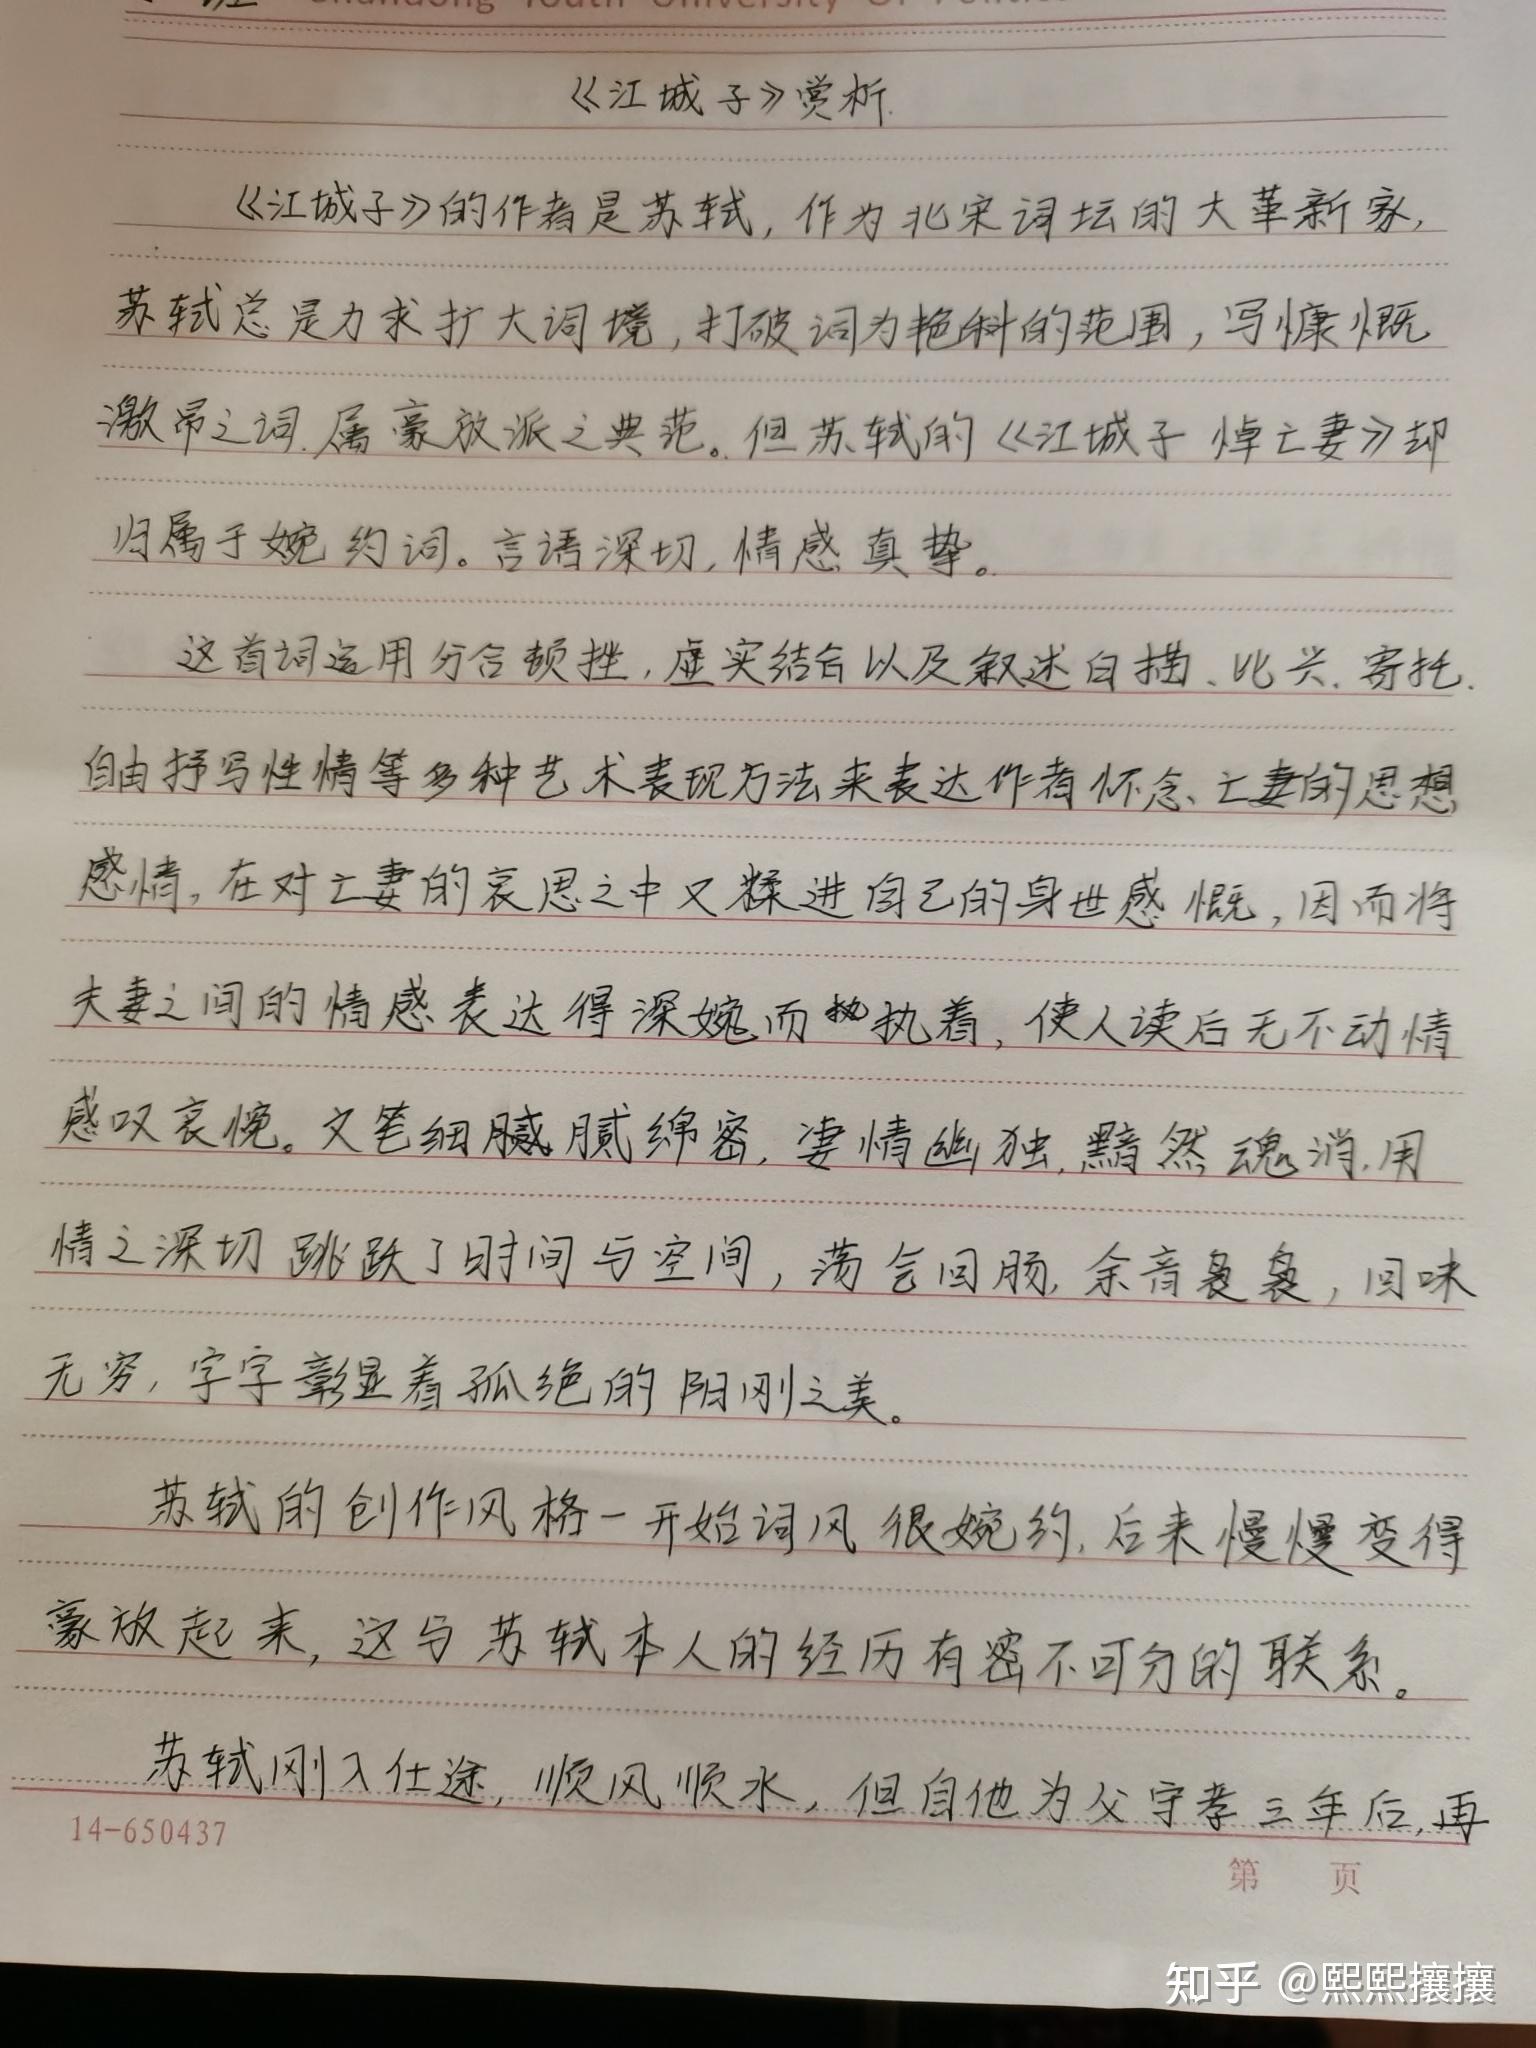 Shandong Youth University Of Politic
《江城子》赏析.
《江城子》的作者是苏轼，作为北宋词坛的大革新家，
苏轼总是力求扩大词境，打破词为艳科的范围，写慷慨
激昂之词.属豪放派之典范。但苏轼的《江城子 悼亡妻》却
归属于婉约词。言语深切，情感真挚。
这首词运用分合顿挫，虚实结合以及叙述白描、比兴、寄托.
自由抒写性情等多种艺术表现方法来表达作者怀念亡妻的思想
感情，在对亡妻的哀思之中又糅进自己的身世感慨，因而将
夫妻之间的情感表达得深婉而执执着，使人读后无不动情
感叹哀惋。文笔细腻腻绵密，凄情幽独，黯然魂消，用
情之深切跳跃了时间与空间，荡气回肠，余音袅袅，回味
无穷，字字彰显着孤绝的阴刚之美。
苏轼的创作风格一开始词风很婉约，后来慢慢变得
豪放起来，这与苏轼本人的经历有密不可分的联系。
苏轼刚入仕途，顺风顺水，但自他为父守孝三年后，再
14-650437
第 页
知乎 @熙熙攘攘